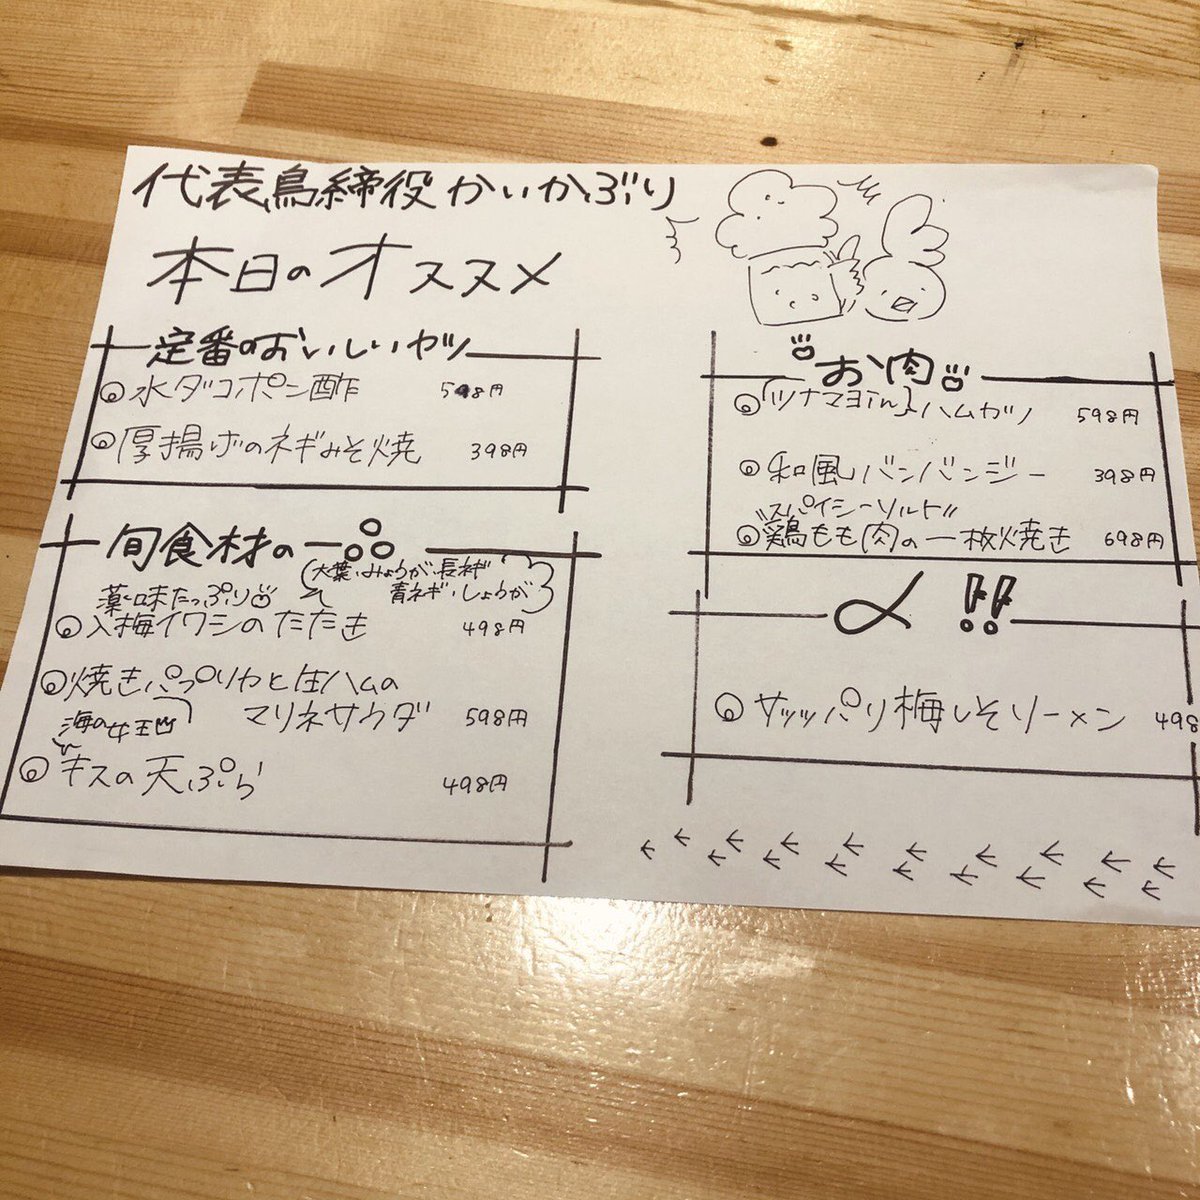 代表鳥締役 かいかぶり
本日のオススメ
定番のおいしいヤツ
水ダコポン酢 598円
厚揚げのネギみそ焼 398円
旬食材の一品
薬味たっぷり
大葉・みょうが・長ネギ
青ネギ・しょうが
入梅イワシのたたき 498円
焼きパプリカと生ハムの
マリネサラダ 598円
海の女王
キスの天ぷら 498円
お肉
ツナマヨin ハムカツ 598円
和風バンバンジー 398円
"スパイシーソルト"
鶏もも肉の一枚焼き 698円
〆!!
サッパリ梅しそソーメン 498